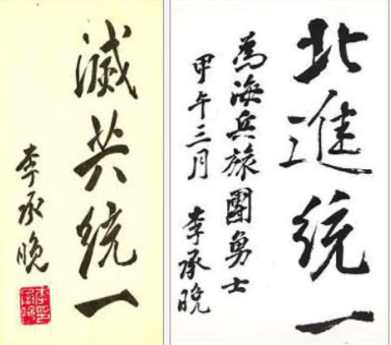 滅共統一
李承晩
北進統一
為海兵旅團勇士
甲午三月 李承晩